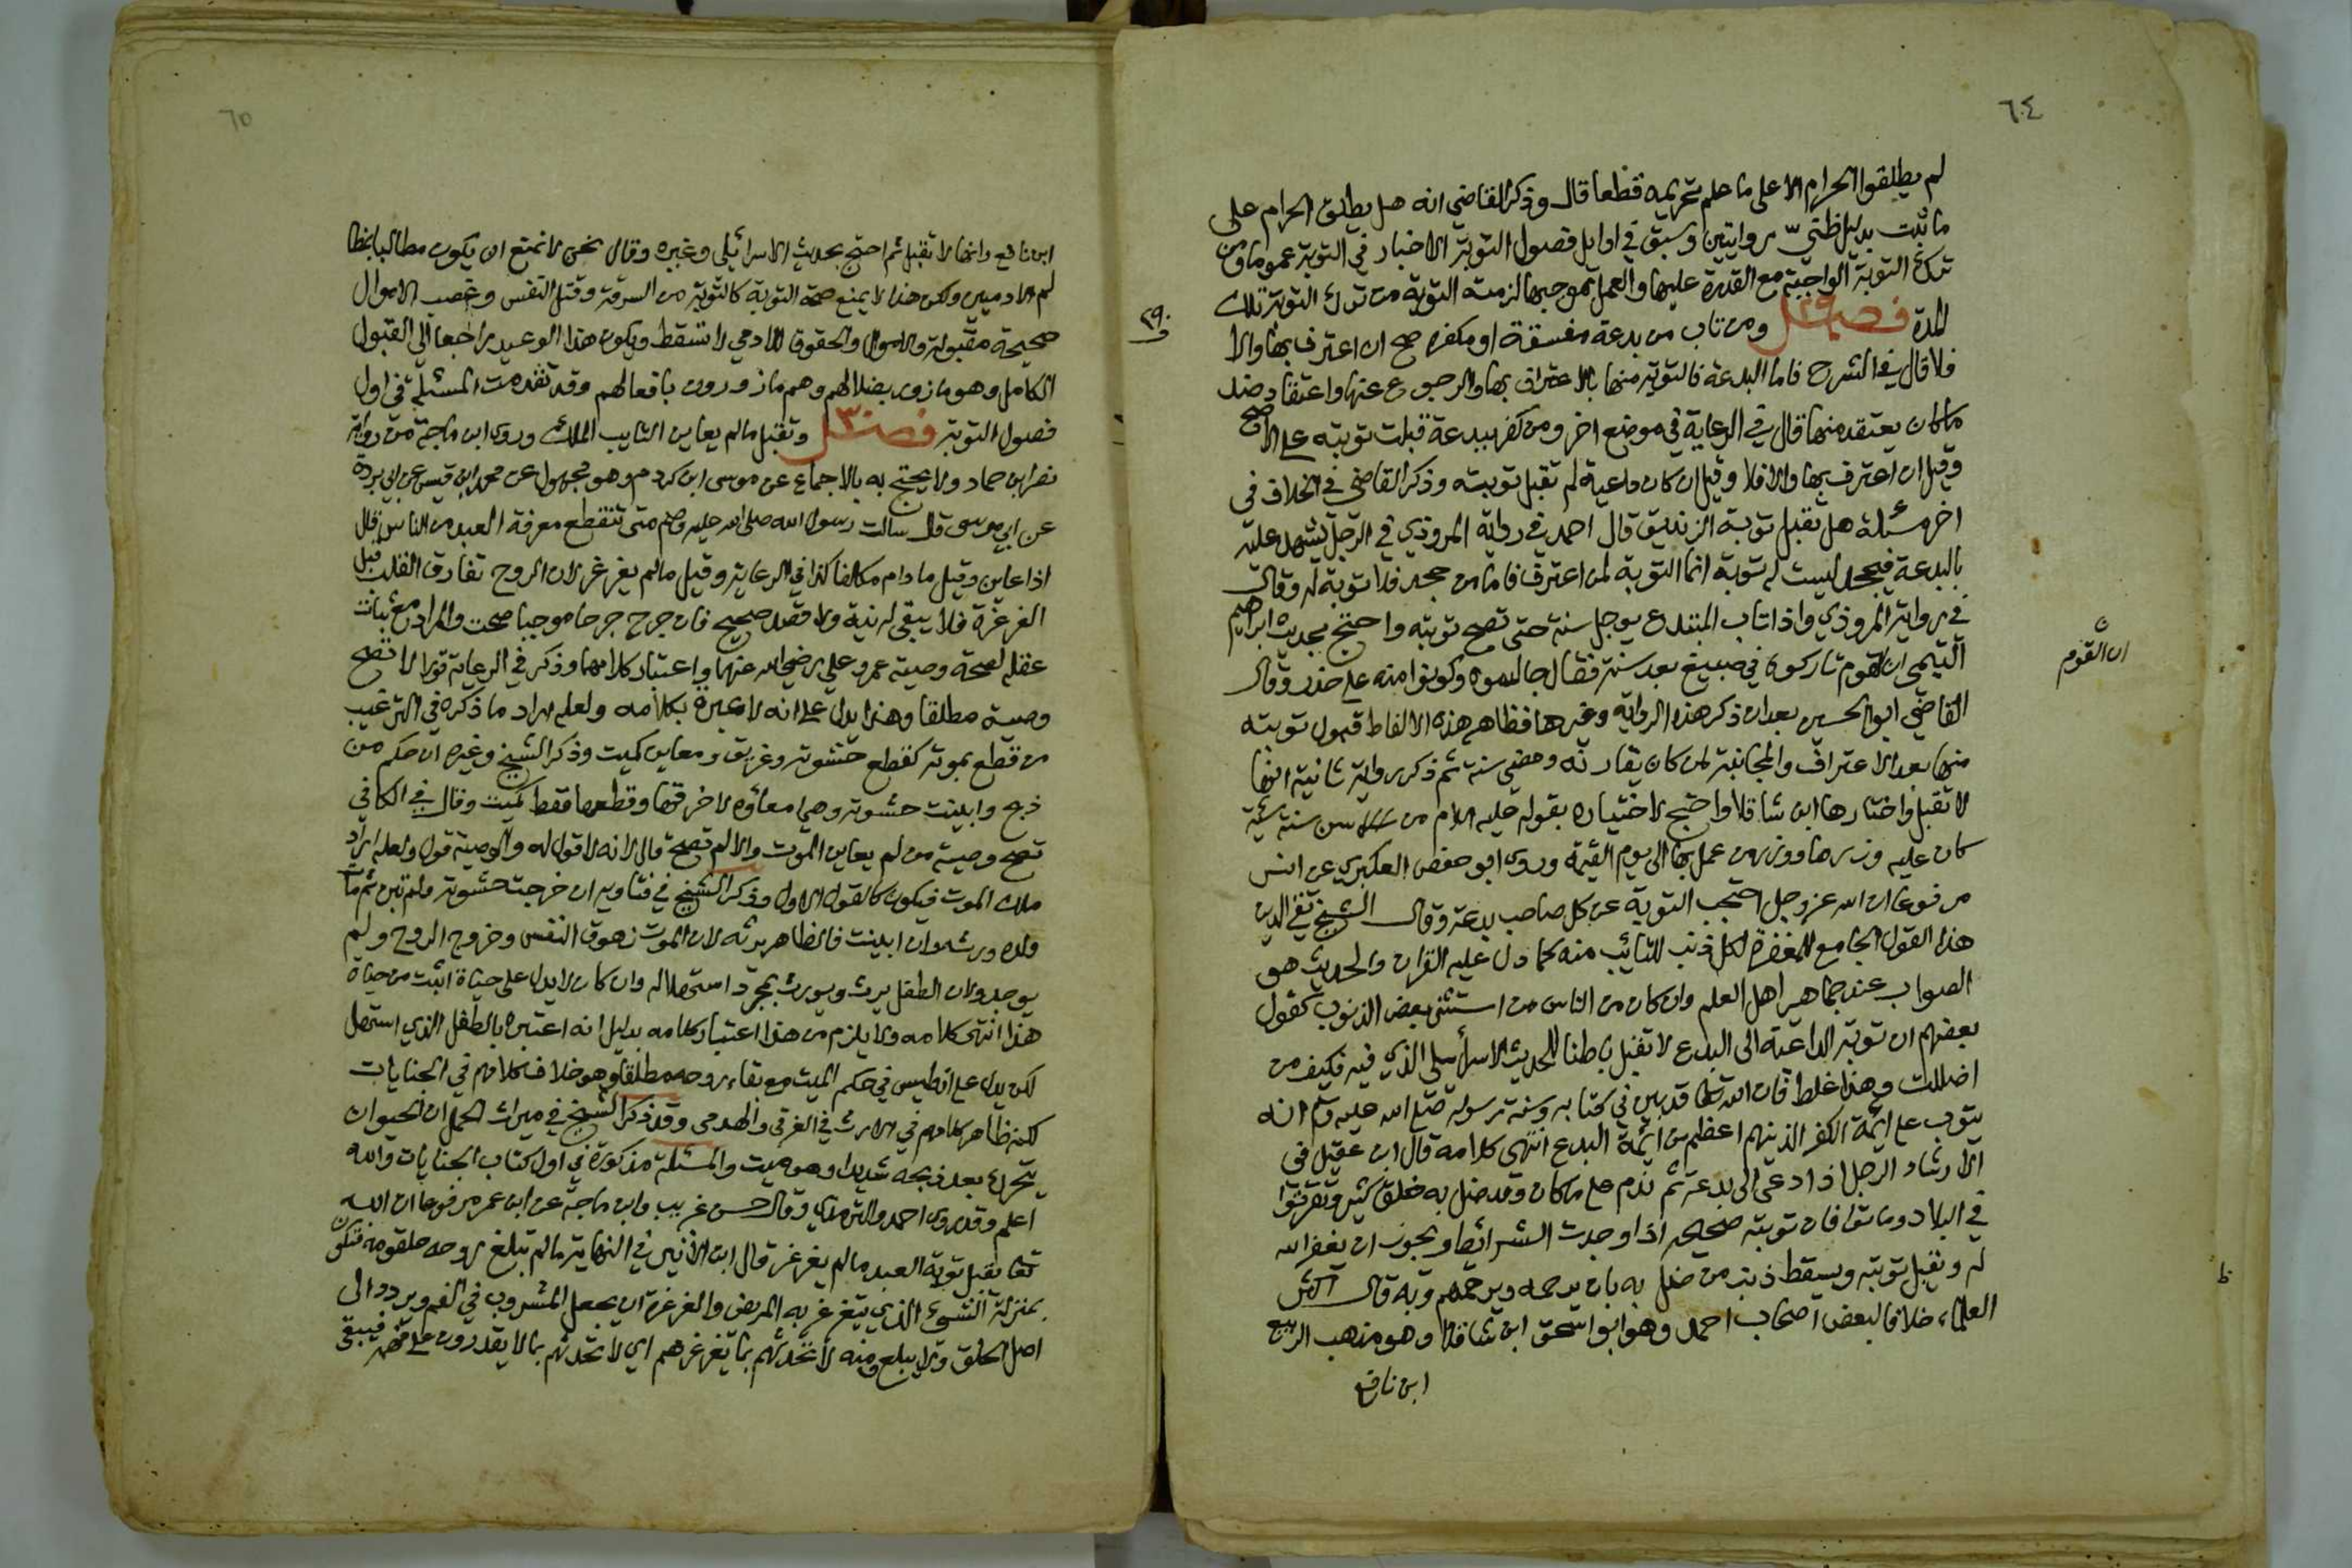 ٦٤
لم يطلقوا الحرام الا على ما علم تحريمه قطعا قال وذكر القاضي انه هل يطلق الحرام على
ما ثبت بدليل ظني روايتين وسبق في اوايل فصول التوبة الاخبار في التوبة عموما ومن
ترك التوبة الواجبة مع القدرة عليها والعمل بموجبها لزمته التوبة من ترك التوبة تلك
المدة فصل ٢٩ ومن تاب من بدعة مفسقة او مكفرة صح ان اعترف بها والا
٢٩٠
فلا قال في الشرح فاما البدعة فالتوبة منها بالاعتراف بها والرجوع عنها واعتقاد ضد
ما كان يعتقد منها قال في الرعاية في موضع اخر ومن كفر ببدعة قبلت توبته على الاصح
وقيل ان اعترف بها والا فلا وقيل ان كان داعية لم تقبل توبته وذكر القاضي في الخلاف في
اخر مسئلة هل تقبل توبة الزنديق قال احمد في رواية المروذي في الرجل يشهد عليه
بالبدعة فيجحد ليست له توبة انما التوبة لمن اعترف فاما من جحد فلا توبة له وقال
في رواية المروذي واذا تاب المبتدع يوجل سنة حتى تصح توبته واحتج بحديث ابراهيم
التيمي ان القوم تاركوه في صبيغ بعد سنة فقال جالسوه وكونوا منه على حذر وقال
ان القوم
القاضي ابو الحسين بعد ان ذكر هذه الرواية وغيرها فظاهر هذه الالفاظ قبول توبته
منها بعد الاعتراف والمجانبة لمن كان يقارنه ومضي سنة ثم ذكر رواية ثانية انها
لا تقبل واختارها ابن شاقلا واحتج لاختياره بقوله عليه السلام من سن سنة سيئة
كان عليه وزرها ووزر من عمل بها الى يوم القيمة وروى ابو حفص العكبري عن انس
مرفوعا ان الله عز وجل احتجب التوبة عن كل صاحب بدعة وقال الشيخ تقي الدين
هذا القول الجامع للمغفرة لكل ذنب للتائب منه كما دل عليه القران والحديث هو
الصواب عند جماهير اهل العلم وان كان من الناس من استثنى بعض الذنوب كقول
بعضهم ان توبة الداعية الى البدع لا تقبل باطنا للحديث الاسرائيلي الذي فيه فكيف من
اضللت وهذا غلط فان الله تعالى قد بين في كتابه وسنة رسوله صلى الله عليه وسلم انه
يتوب على ائمة الكفر الذين هم اعظم من ائمة البدع انتهى كلامه قال ابن عقيل في
الارشاد الرجل اذا دعى الى بدعة ثم ندم على ما كان وقد ضل به خلق كثير وتفرقوا
في البلاد وماتوا فان توبته صحيحة اذا وجدت الشرائط ويجوز ان يغفر الله
ط
له وتقبل توبته ويسقط ذنب من ضل به بان يرحمه ويرحمهم وبه قال اكثر
العلماء خلافا لبعض اصحاب احمد وهو ابو اسحق ابن شاقلا وهو مذهب الربيع
ابن نافع
٦٥
ابن نافع وانها لا تقبل ثم احتج بحديث الاسرائيلي وغيره وقال نحن لا نمنع ان يكون مطالبا بمظالم
الادميين ولكن هذا لا يمنع صحة التوبة كالتوبة من السرقة وقتل النفس وغصب الاموال
صحيحة مقبولة والاموال والحقوق للادمي لا تسقط ويكون هذا الوعيد راجعا الى القبول
الكامل وهو مازور بضلالهم وهم مازورون بافعالهم وقد تقدمت المسئلة في اول
فصول التوبة فصل ٣٠ وتقبل ما لم يعاين التايب الملك وروى ابن ماجة من رواية
نصر ابن حماد ولا يحتج به بالاجماع عن موسى ابن كردم وهو مجهول عن محمد ابن قيس عن ابي بردة
عن ابي موسى قال سالت رسول الله صلى الله عليه وسلم متى تنقطع معرفة العبد من الناس قال
اذا عاين وقيل ما دام مكلفا كذا في الرعاية وقيل ما لم يغرغر لان الروح تفارق القلب قبل
الغرغرة فلا يبقى له نية ولا قصد صحيح فان جرح جرحا موجبا صحت والمراد مع ثبات
عقله لصحة وصية عمر وعلي رضي الله عنهما واعتبار كلامهما وذكر في الرعاية قولا لا تصح
وصية مطلقا وهذا يدل على انه لا عبرة بكلامه ولعله اراد ما ذكره في الترغيب
من قطع بموته كقطع حشوته وغريق ومعاين كميت وذكر الشيخ وغيره ان حكم من
ذبح وابينت حشوته وهي امعاؤه لا خرقتها وقطعها فقط كميت وقال في الكافي
تصح وصية من لم يعاين الموت والا لم تصح قال لانه لا قول له والوصية قول ولعله اراد
ملك الموت فيكون كالقول الاول وذكر الشيخ في فتاويه ان خرجت حشوته ولم تبن ثم مات
ولده ورثه وان ابينت فالظاهر يرثه لان الموت زهوق النفس وخروج الروح ولم
يوجد ولان الطفل يرث ويورث بمجرد استهلاله وان كان لا يدل على حياة اثبت من حياة
هذا انتهى كلامه ولا يلزم من هذا اعتبار كلامه بدليل انه اعتبره بالطفل الذي استهل
لكن يدل على انه ليس في حكم الميت مع بقاء روحه مطلقا وهو خلاف كلامهم في الجنايات
لكنه ظاهر كلامهم في الارث في الغرقى والهدمى وقد ذكر الشيخ في ميراث الحمل ان الحيوان
يتحرك بعد ذبحه شديدا وهو ميت والمسئلة مذكورة في اول كتاب الجنايات والله
اعلم وقد روى احمد والترمذي وقال حسن غريب وابن ماجة عن ابن عمر مرفوعا ان الله
تعا يقبل توبة العبد ما لم يغرغر قال ابن الاثير في النهاية ما لم تبلغ روحه حلقومه فتكون
بمنزلة الشيء الذي يتغرغر به المريض والغرغرة ان يجعل المشروب في الفم ويردد الى
اصل الحلق ولا يبلع ومنه لا تحدثهم بما يغرغرهم اي لا تحدثهم بما لا يقدرون على فهمه فيبقى